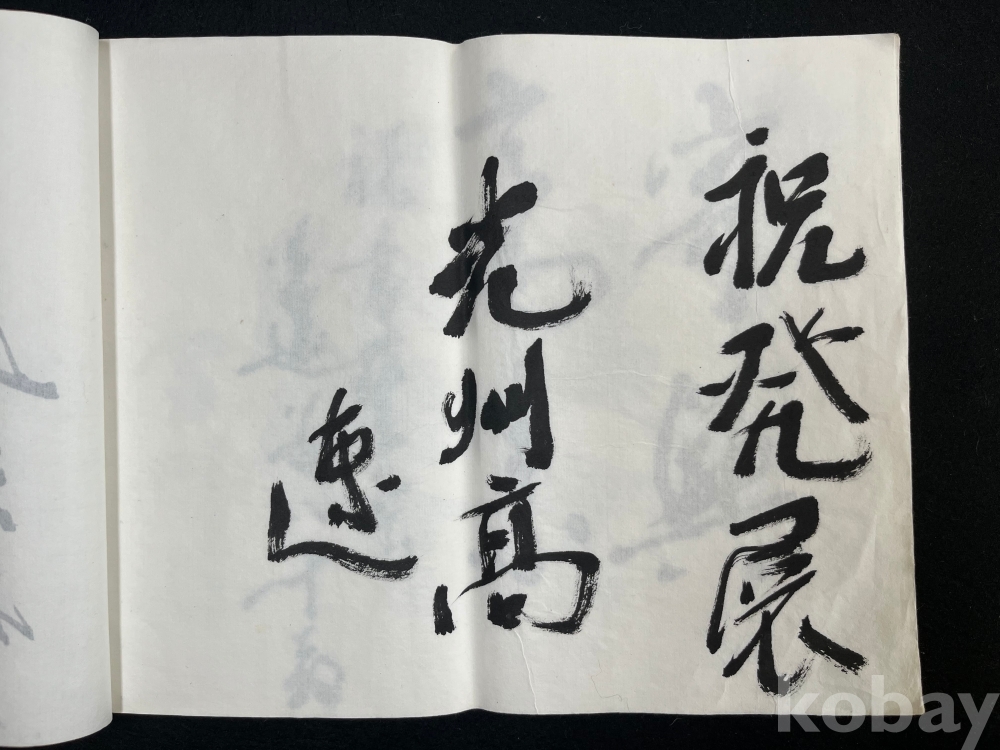 祝発展
光州高
速
kobay